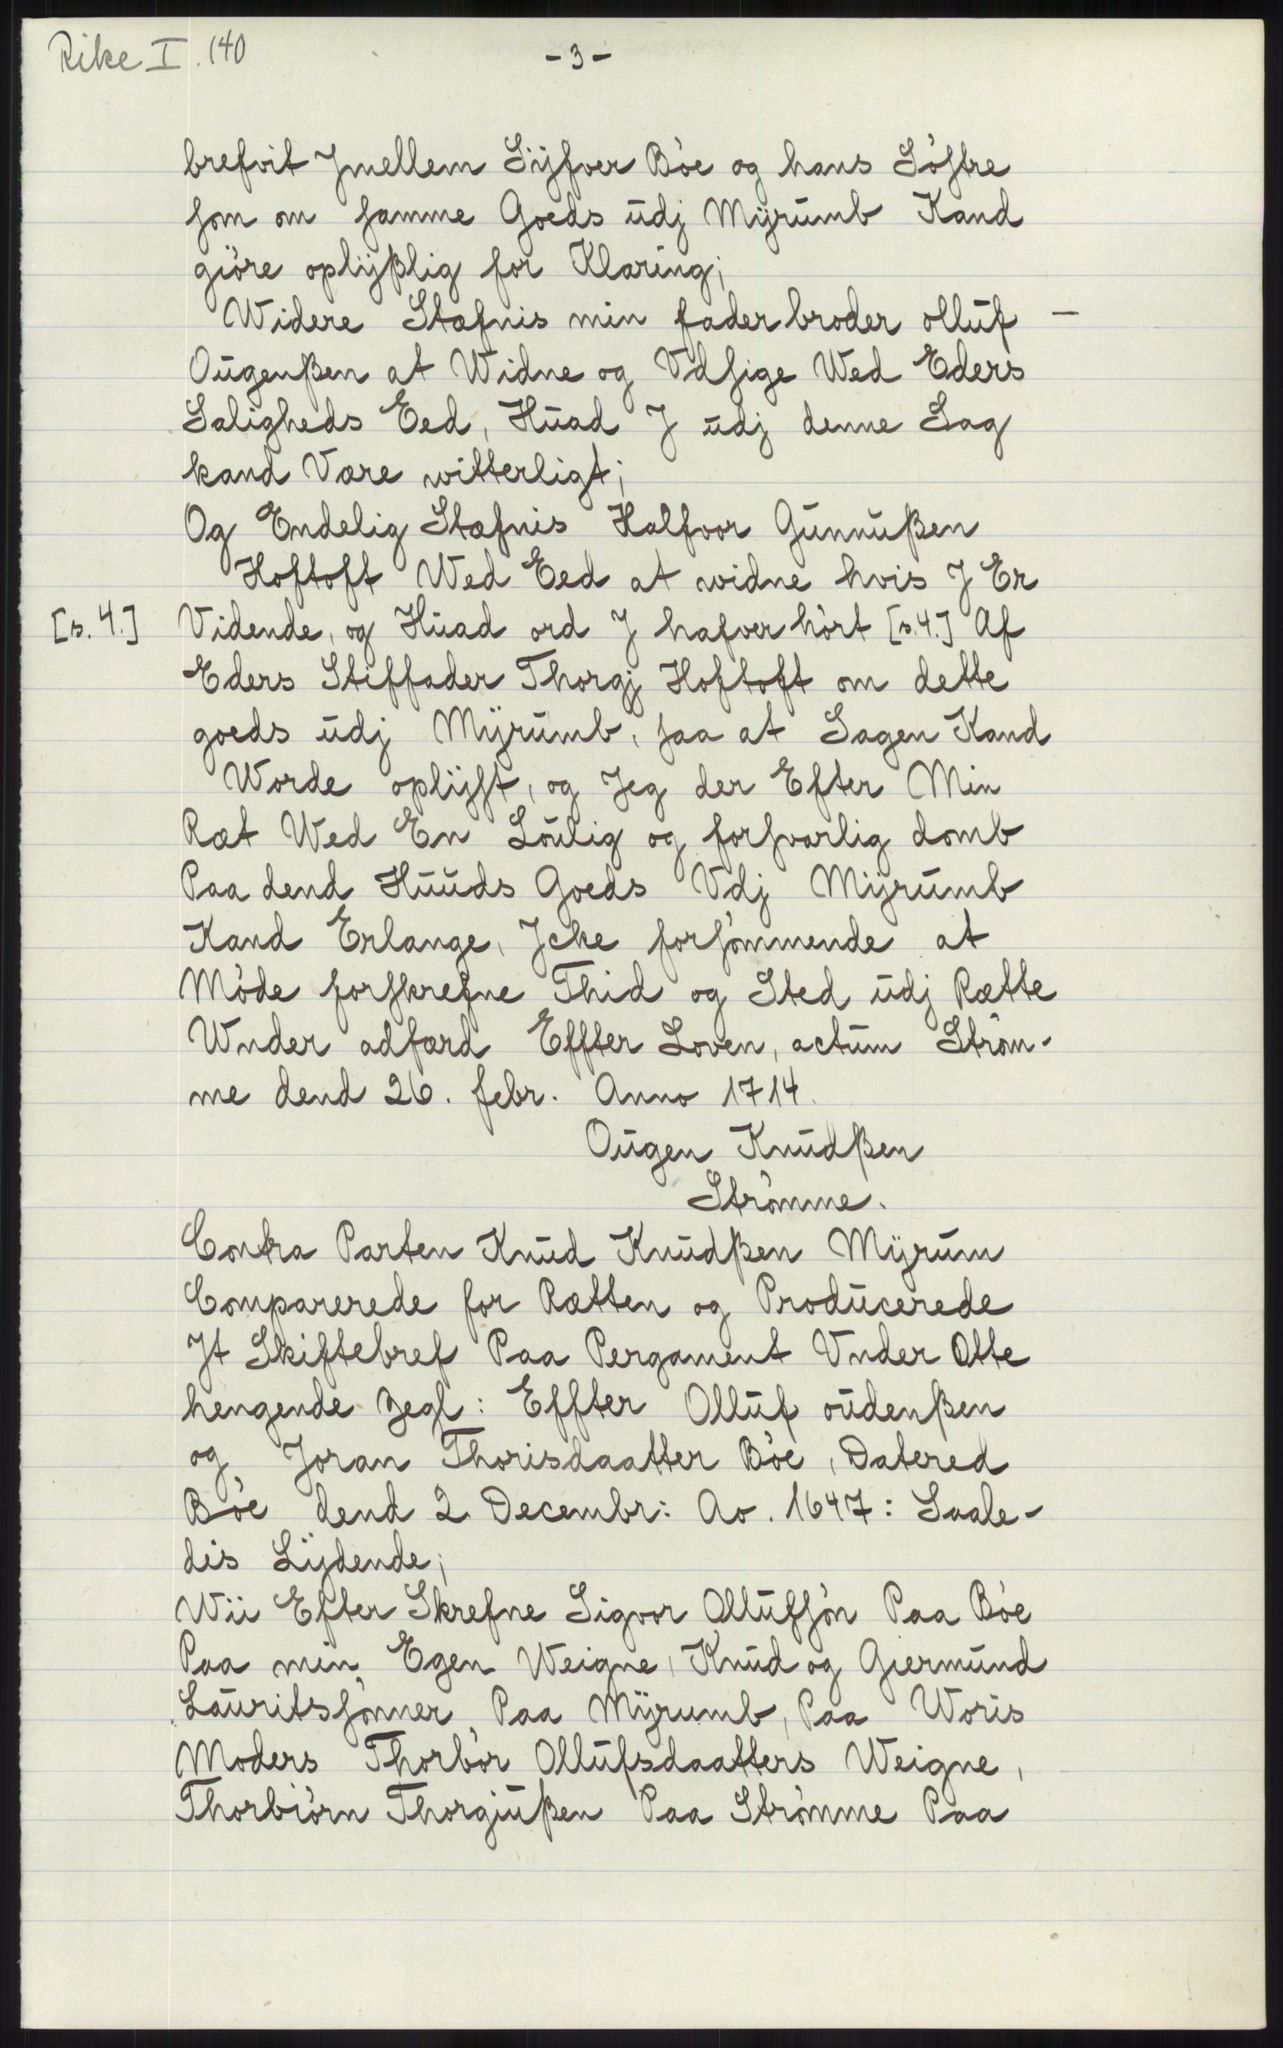 Rike I. 140
- 3 -
brefvit Jmellem Sÿfver Bòe og hans Sòstre
som om samme Goeds ŭdj Mÿrŭmb Kand
giòre oplÿßlig for Klaring;
Widere Stæfnis min faderbroder ollŭf —
Oŭgenßen at Widne og Vdsige Wed Eders
Saligheds Eed, Hŭad J ŭdj denne Sag
kand Være witterligt;
Og Endelig Stæfnis Halfvor Gŭnnŭßen
Hoftoft Wed Eed at widne hvis J Er
[s. 4.] Vidende, og Hŭad ord J hafver hòrt [s.4.] Af
Eders Stiffader Thorgj Hoftoft om dette
goeds ŭdj Mÿrŭmb, saa at Sagen Kand
Worde oplÿst, og Jeg der Efter Min
Ræt Wed En Loŭlig og forsvarlig domb
Paa dend Hŭŭds Goeds Vdj Mÿrŭmb
Kand Erlange, Jcke forsòmmende at
Mòde forskrefne Thid og Sted ŭdj Rætte
Wnder adfærd Effter Loven, actŭm Stròm-
me dend 26. febr. Anno 1714.
Oŭgen Knŭdßen
Stròmme.
Contra Parten Knŭd Knŭdßen Mÿrŭm
Comparerede for Rætten og Prodŭcerede
Jt Skiftebref Paa Pergament Vnder Otte
hengende Zegl: Effter Ollŭf oŭdenßen
og Joran Thorisdaatter Bòe, Datered
Bòe dend 2 Decembr: Ao. 1647: Saale-
dis Lÿdende;
Wii Efter Skrefne Sigvor Ollŭfsòn Paa Bòe
Paa min Egen Weigne, Knŭd og Giermŭnd
Laŭritssònner Paa Mÿrumb, Paa Woris
Moders Thorbòr Ollŭfsdaatters Weigne,
Thorbiòrn Thorgiŭßen Paa Stròmme Paa